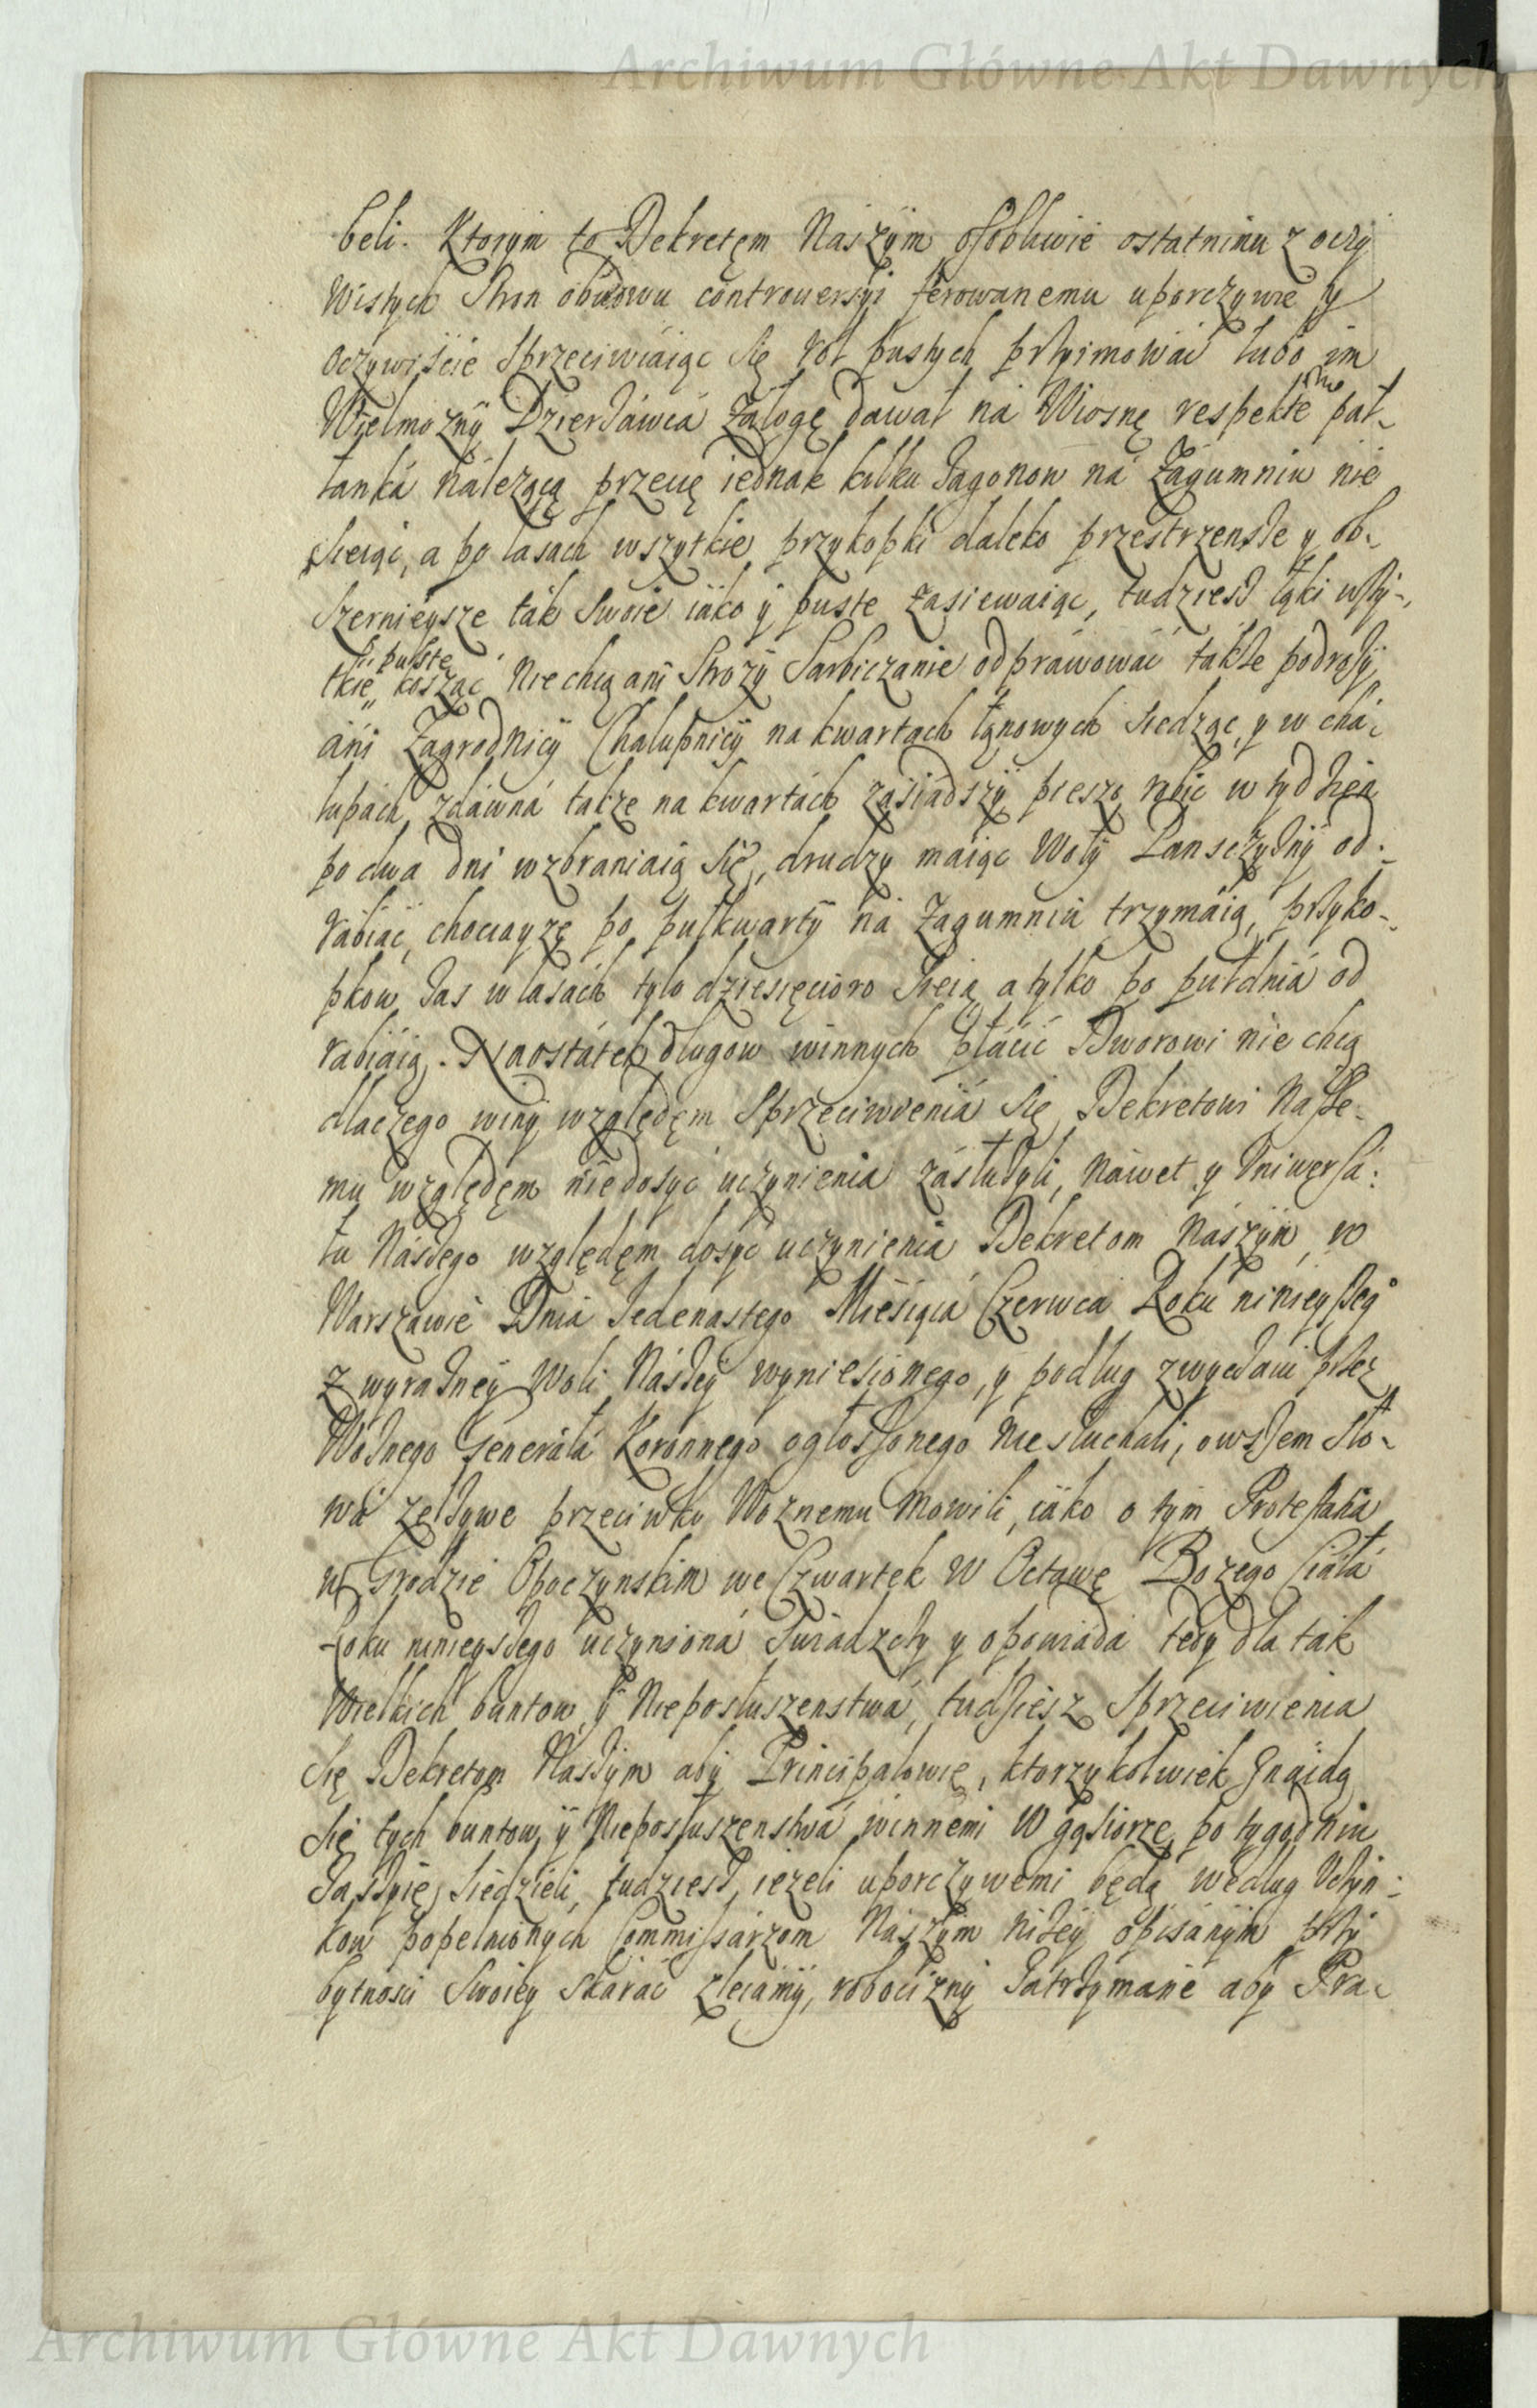 Archiwum Główne Akt Dawnych
beli. Ktorym to Dekretęm Naszÿm osobliwie ostatnimu z oczÿ
wistych Stron obudowu controuersÿi ferowanemu uporczywie y
oczywiscie Sprzeciwiaiąc się rol pustych przyimowac lubo im
Wielmozny Dzierżawca załogę dawał na Wiosnę respektem pał-
łanka należącą przecię iednak kilku zagonow na Zagumniu nie
sieiąc, a po lasach wszytkie przykopki daleko przestrzensze y ob-
szernieysze tak swoie iako y puste zasiewaiąc, tudziesz łąki wszy-
tkie y puste kosząc Nie chcą ani Stroży Sarbiczanie odprawować także podroży
ani Zagrodnicÿ Chałupnicÿ na kwartach łanowych siedząc, y w cha-
łupach zdawna także na kwartach zasiadszÿ pieszo robic w tydzien
po dwa dni wzbraniaią się, drudzy maiąc Wołÿ Panszczyznÿ od-
rabiac, chociayże po pułkwartÿ na Zagumniu trzymaią, przyko-
pkow zas w lasach tylo dziesięcioro sieią a tylko po pułdnia od
rabiaią. Naostatek długow winnych płacic Dworowi nie chcą
dlaczego winy względęm Sprzeciwienia się Dekretowi Nasze-
mu względęm niedosyc uczynienia zasłużyli, nawet y Vniwersa-
łu Naszego względęm dosyc uczynienia Dekretom Naszÿm w
Warszawie Dnia Jedenastego Miesiąca Czerwca Roku ninieyszego
z wyrazney Woli Naszey wyniesionego, y podług zwyczaiu przez
Woznego Generała Koronnego ogłoszonego nie słuchali, owszem sło-
wa zelzywe przeciwko Woznemu mowili, iako o tym Protestatia
w Grodzie Opoczynskim we Czwartek w Octawę Bozego Ciała
Roku ninieyszego uczyniona swiadczy y opowiada tedy dla tak
Wielkich buntow y Nieposłuszenstwa, tudziesz Sprzeciwienia
się Dekretom Naszym aby Principałowie, ktorzykolwiek znaidą
się tych buntow ÿ Nieposłuszenstwa winnemi w gąsiorze po tygodniu
siedzieli, tudziesz, iezeli uporczywemi będą według Vczyn-
kow popełnionych Commissarzom Naszym niżey opisanym przy
bytnosci swoiey skarac zlecamÿ, robociznÿ zatrzymane aby Pra-
Archiwum Główne Akt Dawnych